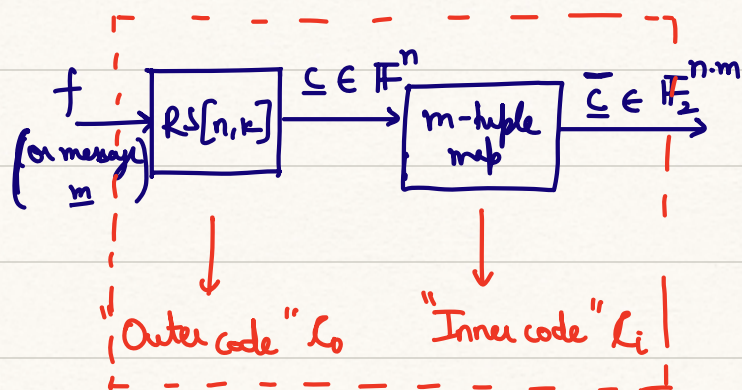 f
(or message m)
RS[n,k]
c ∈ 𝔽^n
m-tuple
map
c̄ ∈ 𝔽_2^{n·m}
"Outer code" C_o
"Inner code" C_i